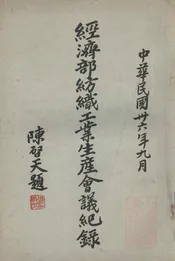 中華民國卅六年九月
經濟部紡織工業生產會議紀錄
陳啓天題